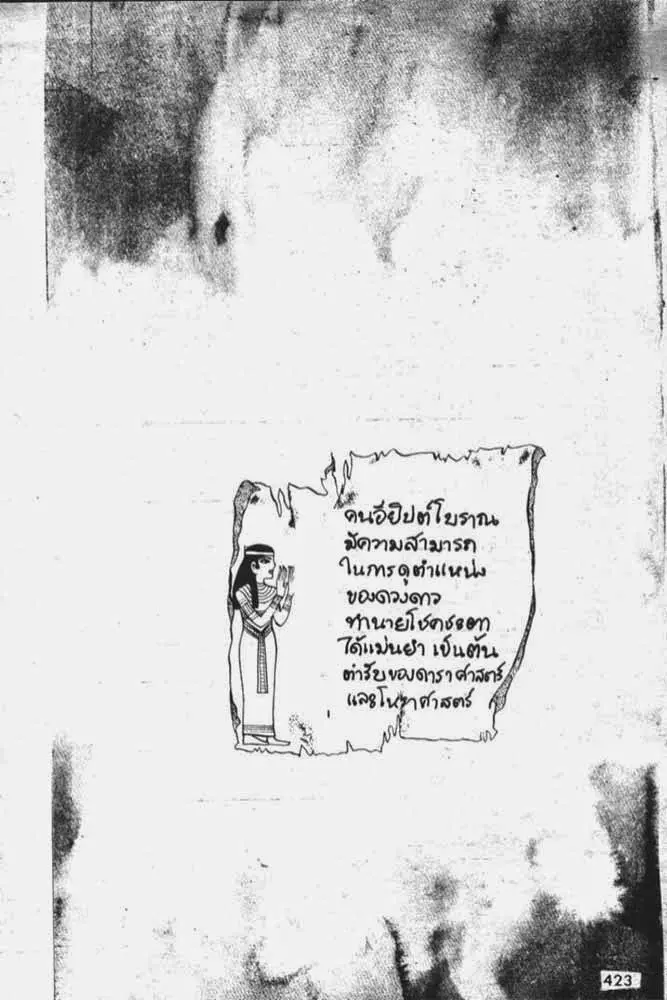 คนอียิปต์โบราณ
มีความสามารถ
ในการดูตำแหน่ง
ของดวงดาว
ทำนายโชคชะตา
ได้แม่นยำ เป็นต้น
ตำรับของดาราศาสตร์
และโหราศาสตร์
423